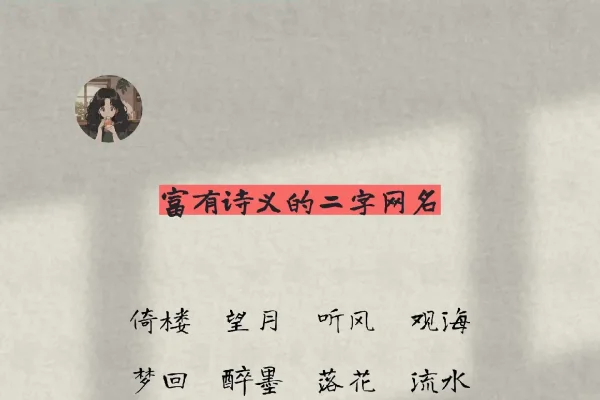 富有诗义的二字网名
倚楼 望月 听风 观海
梦回 醉墨 落花 流水